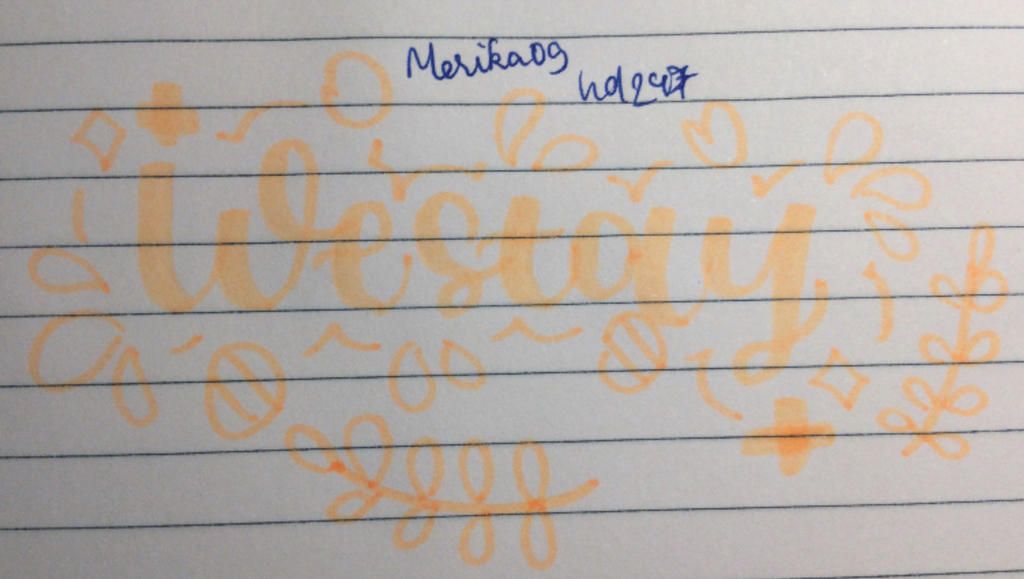 Merika09
hd247
Westay